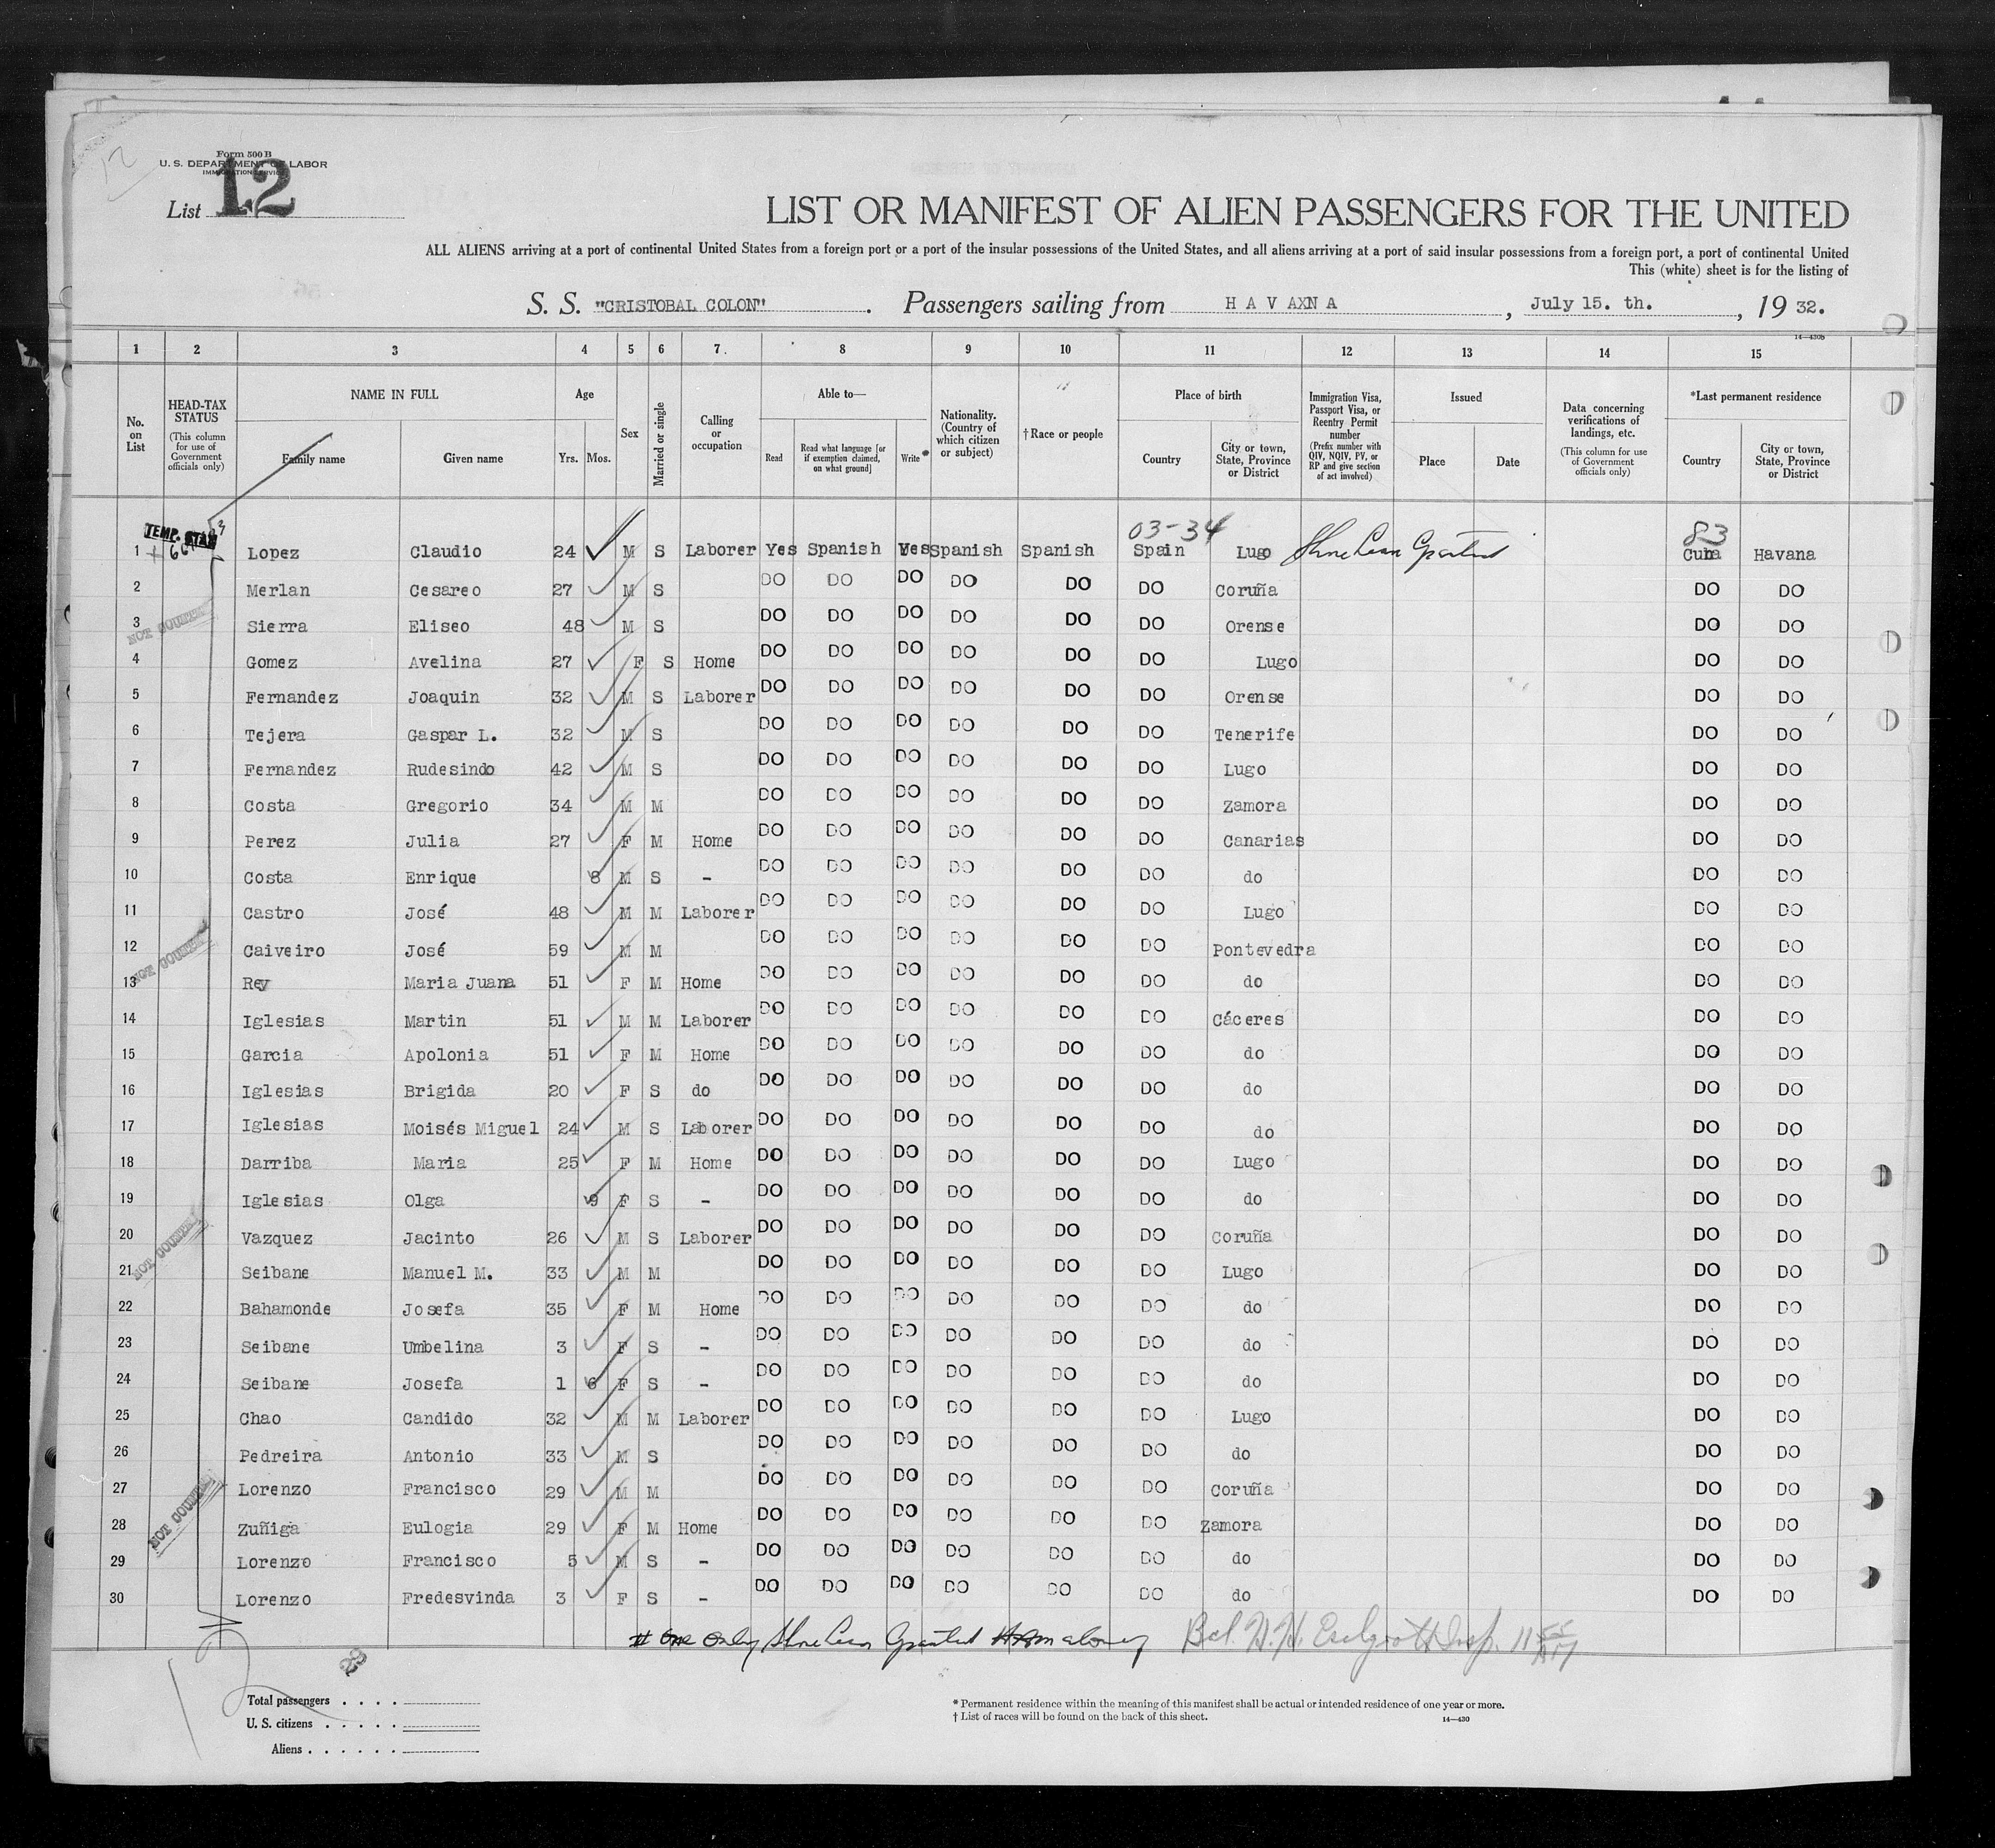 12
Form 500 B
U. S. DEPARTMENT OF LABOR
IMMIGRATION SERVICE
List 12
LIST OR MANIFEST OF ALIEN PASSENGERS FOR THE UNITED
ALL ALIENS arriving at a port of continental United States from a foreign port or a port of the insular possessions of the United States, and all aliens arriving at a port of said insular possessions from a foreign port, a port of continental United
This (white) sheet is for the listing of
S. S. "CRISTOBAL COLON" . Passengers sailing from H A V AXN A , July 15. th. , 19 32.
14—430b
1 2 3 4 5 6 7 8 9 10 11 12 13 14 15
No. on List
HEAD-TAX STATUS (This column for use of Government officials only)
NAME IN FULL
Family name Given name
Age
Yrs. Mos.
Sex
Married or single
Calling or occupation
Able to—
Read Read what language [or if exemption claimed, on what ground] Write
Nationality. (Country of which citizen or subject)
† Race or people
Place of birth
Country City or town, State, Province or District
Immigration Visa, Passport Visa, or Reentry Permit number (Prefix number with QIV, NQIV, PV, or RP and give section of act involved)
Issued
Place Date
Data concerning verifications of landings, etc. (This column for use of Government officials only)
*Last permanent residence
Country City or town, State, Province or District
TEMP. STAY 03-34 83
1 Lopez Claudio 24 M S Laborer Yes Spanish Yes Spanish Spanish Spain Lugo Cuba Havana
2 Merlan Cesareo 27 M S DO DO DO DO DO DO Coruña DO DO
3 Sierra Eliseo 48 M S DO DO DO DO DO DO Orense DO DO
NOT COUNTED
4 Gomez Avelina 27 F S Home DO DO DO DO DO DO Lugo DO DO
5 Fernandez Joaquin 32 M S Laborer DO DO DO DO DO DO Orense DO DO
6 Tejera Gaspar L. 32 M S DO DO DO DO DO DO Tenerife DO DO
7 Fernandez Rudesindo 42 M S DO DO DO DO DO DO Lugo DO DO
8 Costa Gregorio 34 M M DO DO DO DO DO DO Zamora DO DO
9 Perez Julia 27 F M Home DO DO DO DO DO DO Canarias DO DO
10 Costa Enrique 8 M S - DO DO DO DO DO DO do DO DO
11 Castro José 48 M M Laborer DO DO DO DO DO DO Lugo DO DO
12 Caiveiro José 59 M M DO DO DO DO DO DO Pontevedra DO DO
NOT COUNTED
13 Rey Maria Juana 51 F M Home DO DO DO DO DO DO do DO DO
14 Iglesias Martin 51 M M Laborer DO DO DO DO DO DO Cáceres DO DO
15 Garcia Apolonia 51 F M Home DO DO DO DO DO DO do DO DO
16 Iglesias Brigida 20 F S do DO DO DO DO DO DO do DO DO
17 Iglesias Moisés Miguel 24 M S Laborer DO DO DO DO DO DO do DO DO
18 Darriba Maria 25 F M Home DO DO DO DO DO DO Lugo DO DO
19 Iglesias Olga 9 F S - DO DO DO DO DO DO do DO DO
20 Vazquez Jacinto 26 M S Laborer DO DO DO DO DO DO Coruña DO DO
NOT COUNTED
21 Seibane Manuel M. 33 M M DO DO DO DO DO DO Lugo DO DO
22 Bahamonde Josefa 35 F M Home DO DO DO DO DO DO do DO DO
23 Seibane Umbelina 3 F S - DO DO DO DO DO DO do DO DO
24 Seibane Josefa 1 6 F S - DO DO DO DO DO DO do DO DO
25 Chao Candido 32 M M Laborer DO DO DO DO DO DO Lugo DO DO
26 Pedreira Antonio 33 M S DO DO DO DO DO DO do DO DO
27 Lorenzo Francisco 29 M M DO DO DO DO DO DO Coruña DO DO
NOT COUNTED
28 Zuñiga Eulogia 29 F M Home DO DO DO DO DO DO Zamora DO DO
29 Lorenzo Francisco 5 M S - DO DO DO DO DO DO do DO DO
30 Lorenzo Fredesvinda 3 F S - DO DO DO DO DO DO do DO DO
only
29
Total passengers . . . .
U. S. citizens . . . . .
Aliens . . . . . .
* Permanent residence within the meaning of this manifest shall be actual or intended residence of one year or more.
† List of races will be found on the back of this sheet.
14—430